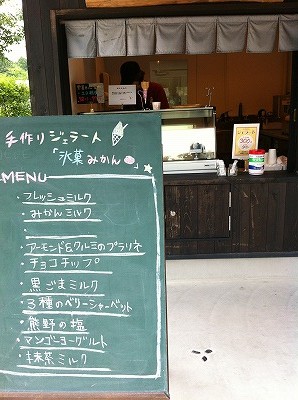 手作りジェラート
「氷菓 みかん
MENU
・フレッシュミルク
・みかんミルク
・アーモンド&クルミのプラリネ
・チョコチップ
・黒ごまミルク
・3種のベリーシャーベット
・熊野の塩
・マンゴーヨーグルト
・抹茶ミルク
300